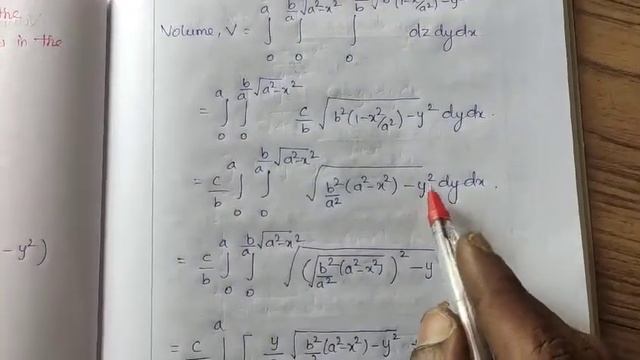 the
s in the
- y²)
a b/a √a²-x² b √b²(1-x²/a²)-y²
Volume, V = ∫ ∫ ∫ dz dy dx
0 0 0
= ∫₀^a ∫₀^{b/a √a²-x²} c/b √b²(1-x²/a²) - y² dy dx.
= c/b ∫₀^a ∫₀^{b/a √a²-x²} √b²/a² (a²-x²) - y² dy dx.
= c/b ∫₀^a ∫₀^{b/a √a²-x²} √(√b²/a² (a²-x²))² - y
= c ∫^a [ y √b²(a²-x²) - y²